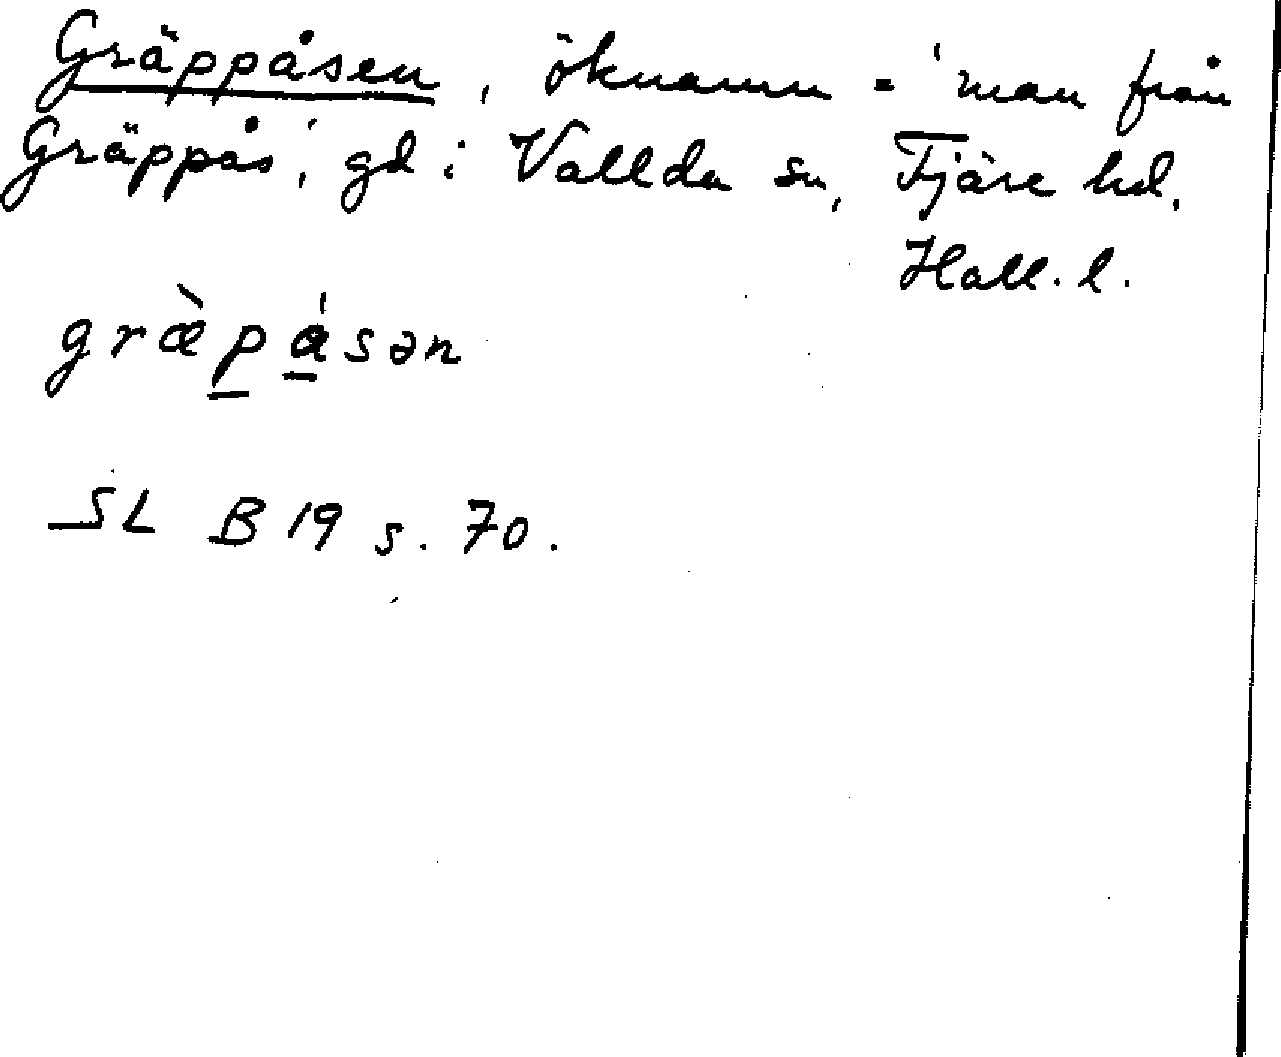 Gräppåsen, öknamn = 'man från
Gräppås', gd i Vallda sn, Fjäre hd.
Hall. l.
græ̀p̲á̲sən
SL B 19 s. 70.